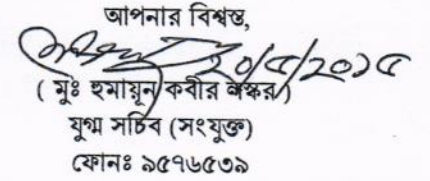 আপনার বিশ্বস্ত,
২০/৫/২০১৫
( মুঃ হুমায়ূন কবীর লস্কর)
যুগ্ম সচিব (সংযুক্ত)
ফোনঃ ৯৫৭৬৫৩৯